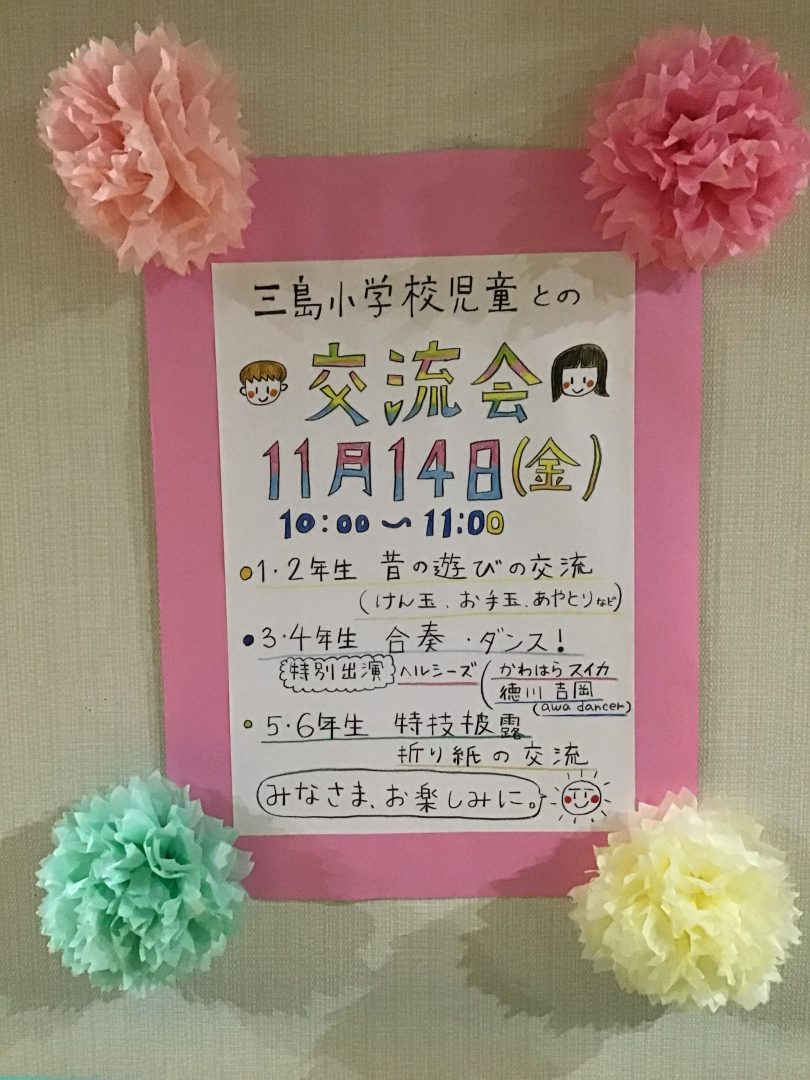 三島小学校児童との
交流会
11月14日(金)
10:00〜11:00
1・2年生 昔の遊びの交流
(けん玉、お手玉、あやとりなど)
3・4年生 合奏・ダンス!
特別出演 ヘルシーズ(かわはらスイカ
徳川吉岡
(awa dancer)
5・6年生 特技披露
折り紙の交流
みなさま、お楽しみに。